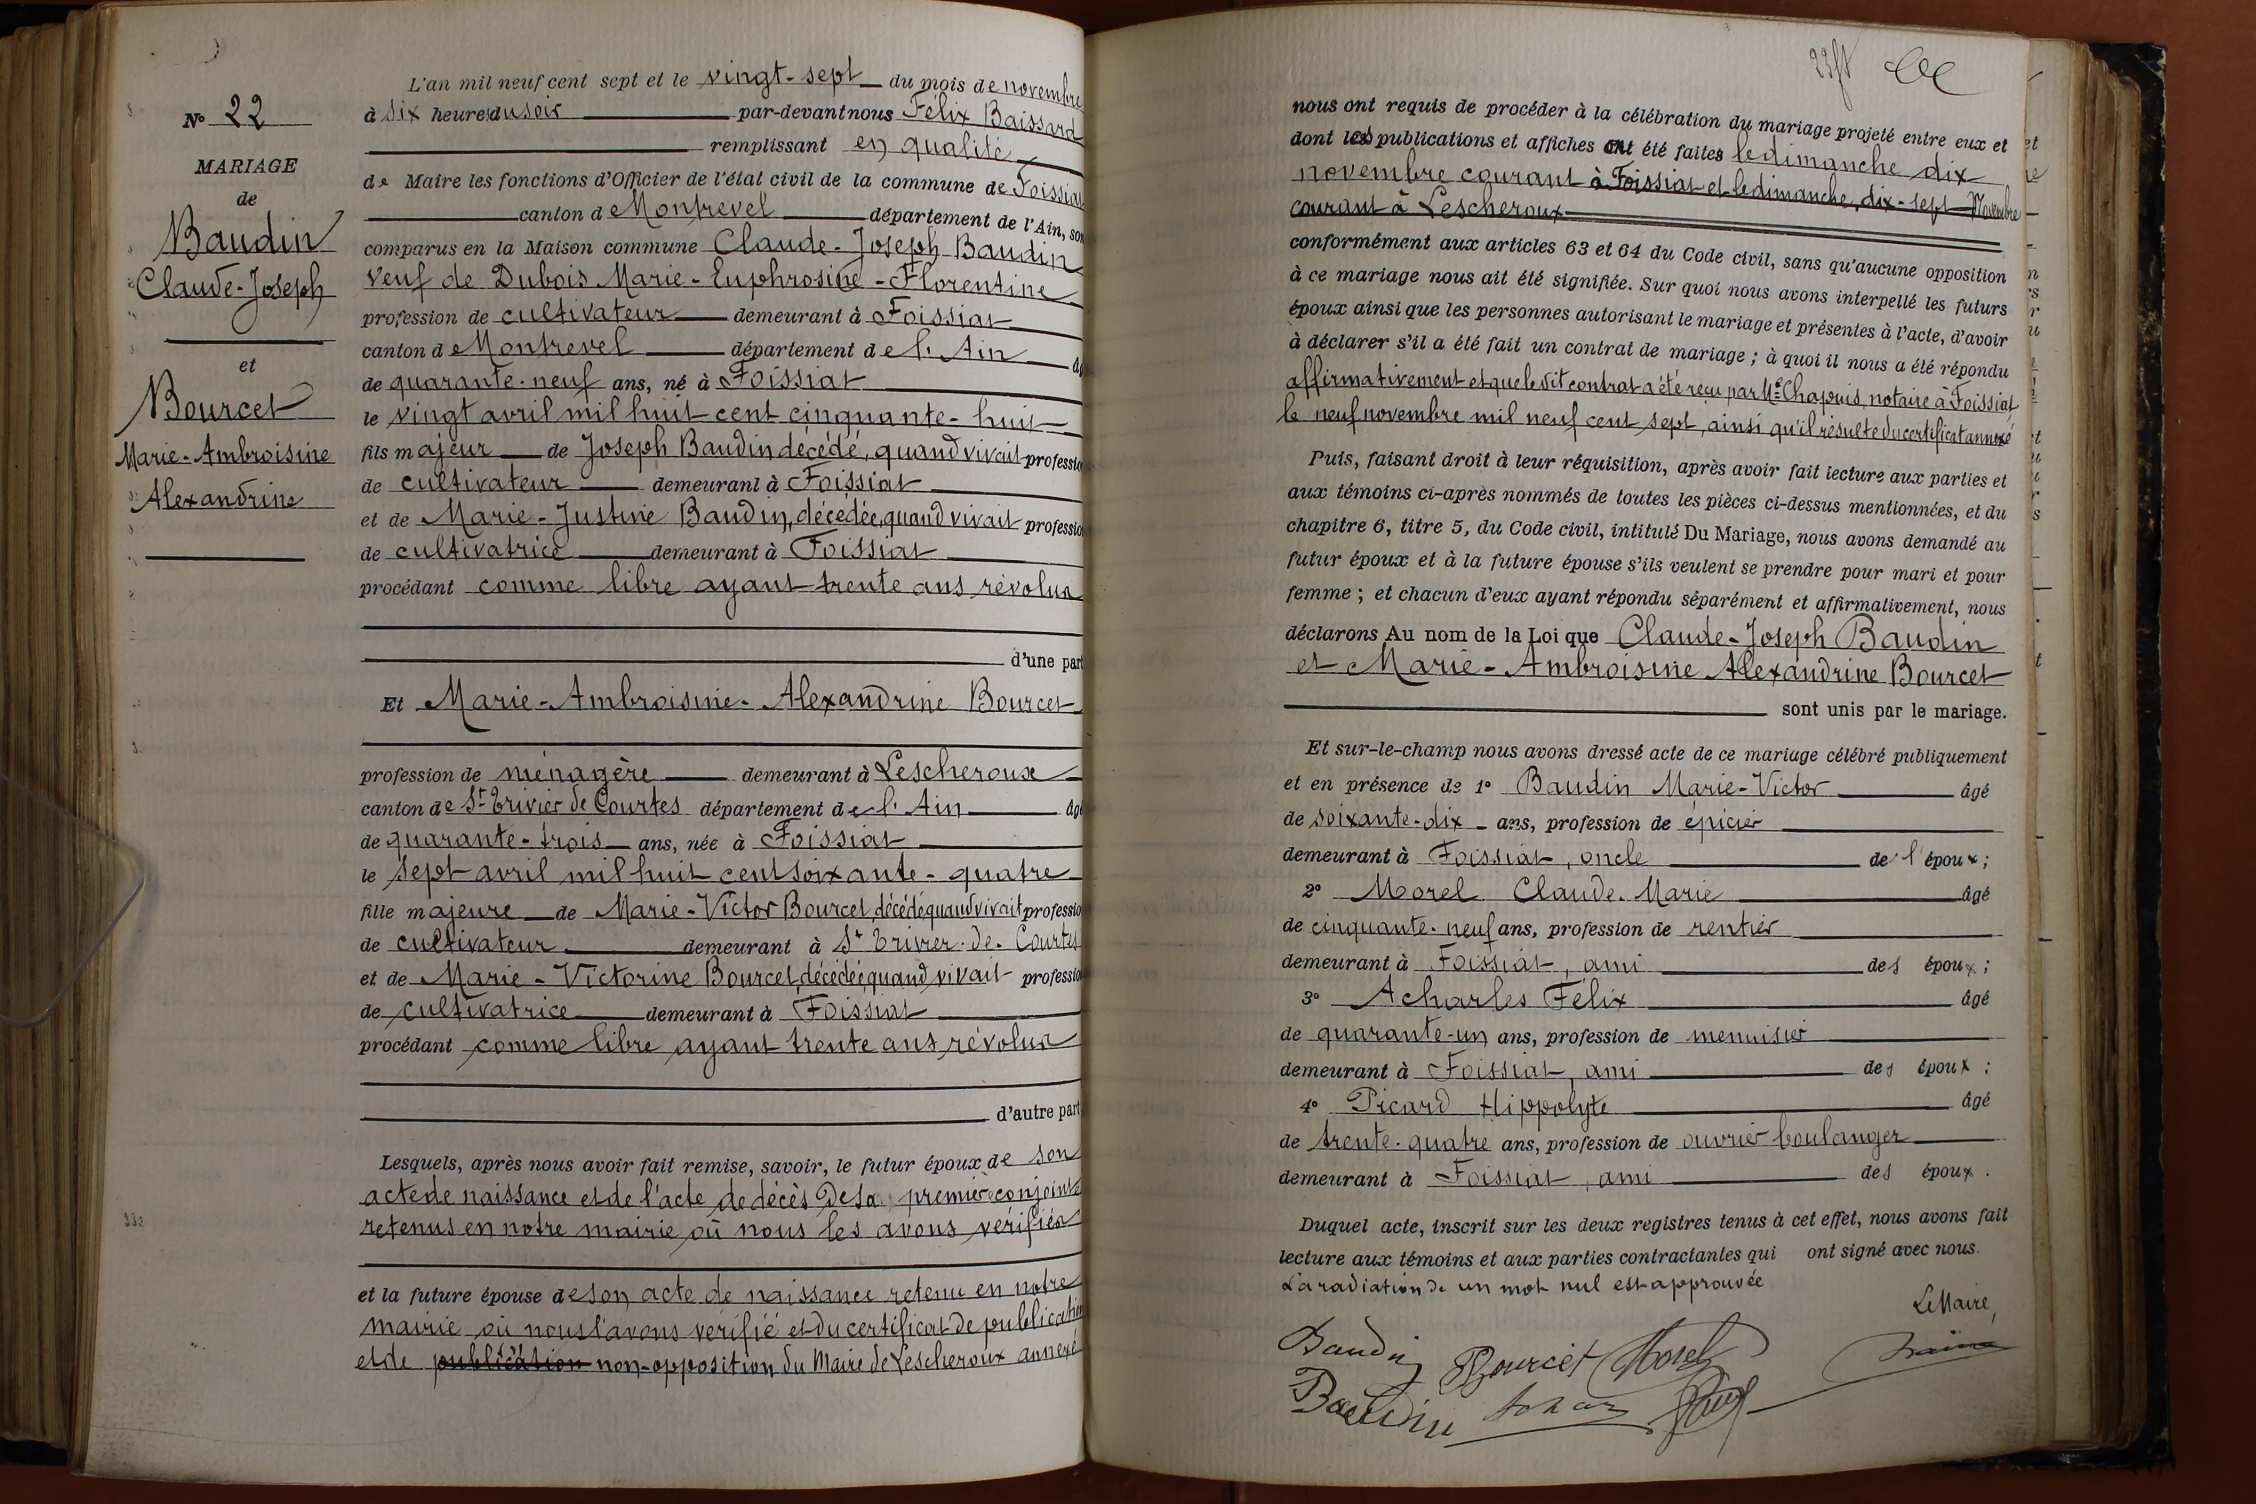 N° 22
MARIAGE
de
Baudin
Claude-Joseph
et
Bourcet
Marie-Ambroisine
Alexandrine
L'an mil neuf cent sept et le vingt-sept du mois de novembre
à six heures du soir par-devant nous Félix Baissard
remplissant en qualité
de Maire les fonctions d'Officier de l'état civil de la commune de Foissiat
canton de Montrevel département de l'Ain, son
comparus en la Maison commune Claude-Joseph Baudin
veuf de Dubois Marie-Euphrosine-Florentine
profession de cultivateur demeurant à Foissiat
canton de Montrevel département de l'Ain âg
de quarante-neuf ans, né à Foissiat
le vingt avril mil huit cent cinquante-huit
fils majeur de Joseph Baudin décédé, quand vivait professio
de cultivateur demeurant à Foissiat
et de Marie-Justine Baudin, décédée, quand vivait professio
de cultivatrice demeurant à Foissiat
procédant comme libre ayant trente ans révolus
d'une part
Et Marie-Ambroisine-Alexandrine Bourcet
profession de ménagère demeurant à Lescheroux
canton de St-Trivier de Courtes département de l'Ain âgé
de quarante-trois ans, née à Foissiat
le sept avril mil huit cent soixante-quatre
fille majeure de Marie-Victor Bourcet, décédé quand vivait professio
de cultivateur demeurant à St Trivier-de-Courtes
et de Marie-Victorine Bourcet, décédée, quand vivait professio
de cultivatrice demeurant à Foissiat
procédant comme libre ayant trente ans révolus
d'autre part
Lesquels, après nous avoir fait remise, savoir, le futur époux de son
acte de naissance et de l'acte de décès de sa première conjointe
retenus en notre mairie où nous les avons vérifiés
et la future épouse de son acte de naissance retenu en notre
mairie où nous l'avons vérifié et du certificat de publication
et de publication non-opposition du Maire de Lescheroux annexé
nous ont requis de procéder à la célébration du mariage projeté entre eux et
dont les publications et affiches ont été faites le dimanche dix
novembre courant à Foissiat et le dimanche, dix-sept Novembre
courant à Lescheroux
conformément aux articles 63 et 64 du Code civil, sans qu'aucune opposition
à ce mariage nous ait été signifiée. Sur quoi nous avons interpellé les futurs
époux ainsi que les personnes autorisant le mariage et présentes à l'acte, d'avoir
à déclarer s'il a été fait un contrat de mariage ; à quoi il nous a été répondu
affirmativement et que le dit contrat a été reçu par Me Chapuis, notaire à Foissiat
le neuf novembre mil neuf cent sept, ainsi qu'il résulte du certificat annexé
Puis, faisant droit à leur réquisition, après avoir fait lecture aux parties et
aux témoins ci-après nommés de toutes les pièces ci-dessus mentionnées, et du
chapitre 6, titre 5, du Code civil, intitulé Du Mariage, nous avons demandé au
futur époux et à la future épouse s'ils veulent se prendre pour mari et pour
femme ; et chacun d'eux ayant répondu séparément et affirmativement, nous
déclarons Au nom de la Loi que Claude-Joseph Baudin
et Marie-Ambroisine Alexandrine Bourcet
sont unis par le mariage.
Et sur-le-champ nous avons dressé acte de ce mariage célébré publiquement
et en présence de 1° Baudin Marie-Victor âgé
de soixante-dix ans, profession de épicier
demeurant à Foissiat, oncle de l'époux ;
2° Morel Claude-Marie âgé
de cinquante-neuf ans, profession de rentier
demeurant à Foissiat, ami des époux ;
3° Acharles Félix âgé
de quarante-un ans, profession de menuisier
demeurant à Foissiat, ami des époux ;
4° Picard Hippolyte âgé
de trente-quatre ans, profession de ouvrier boulanger
demeurant à Foissiat, ami des époux.
Duquel acte, inscrit sur les deux registres tenus à cet effet, nous avons fait
lecture aux témoins et aux parties contractantes qui ont signé avec nous.
La radiation de un mot nul est approuvée
Le Maire,
Baudin Bourcet Morel
Baudin